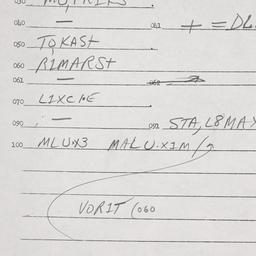 040 — 041 + = DL
050 TQKASt
060 RIMARSt
061 — 062
070 LIXCHE
090 — 091 STA, L8MAX
100 MLUX3 MALU.X1M/
VORIT (060